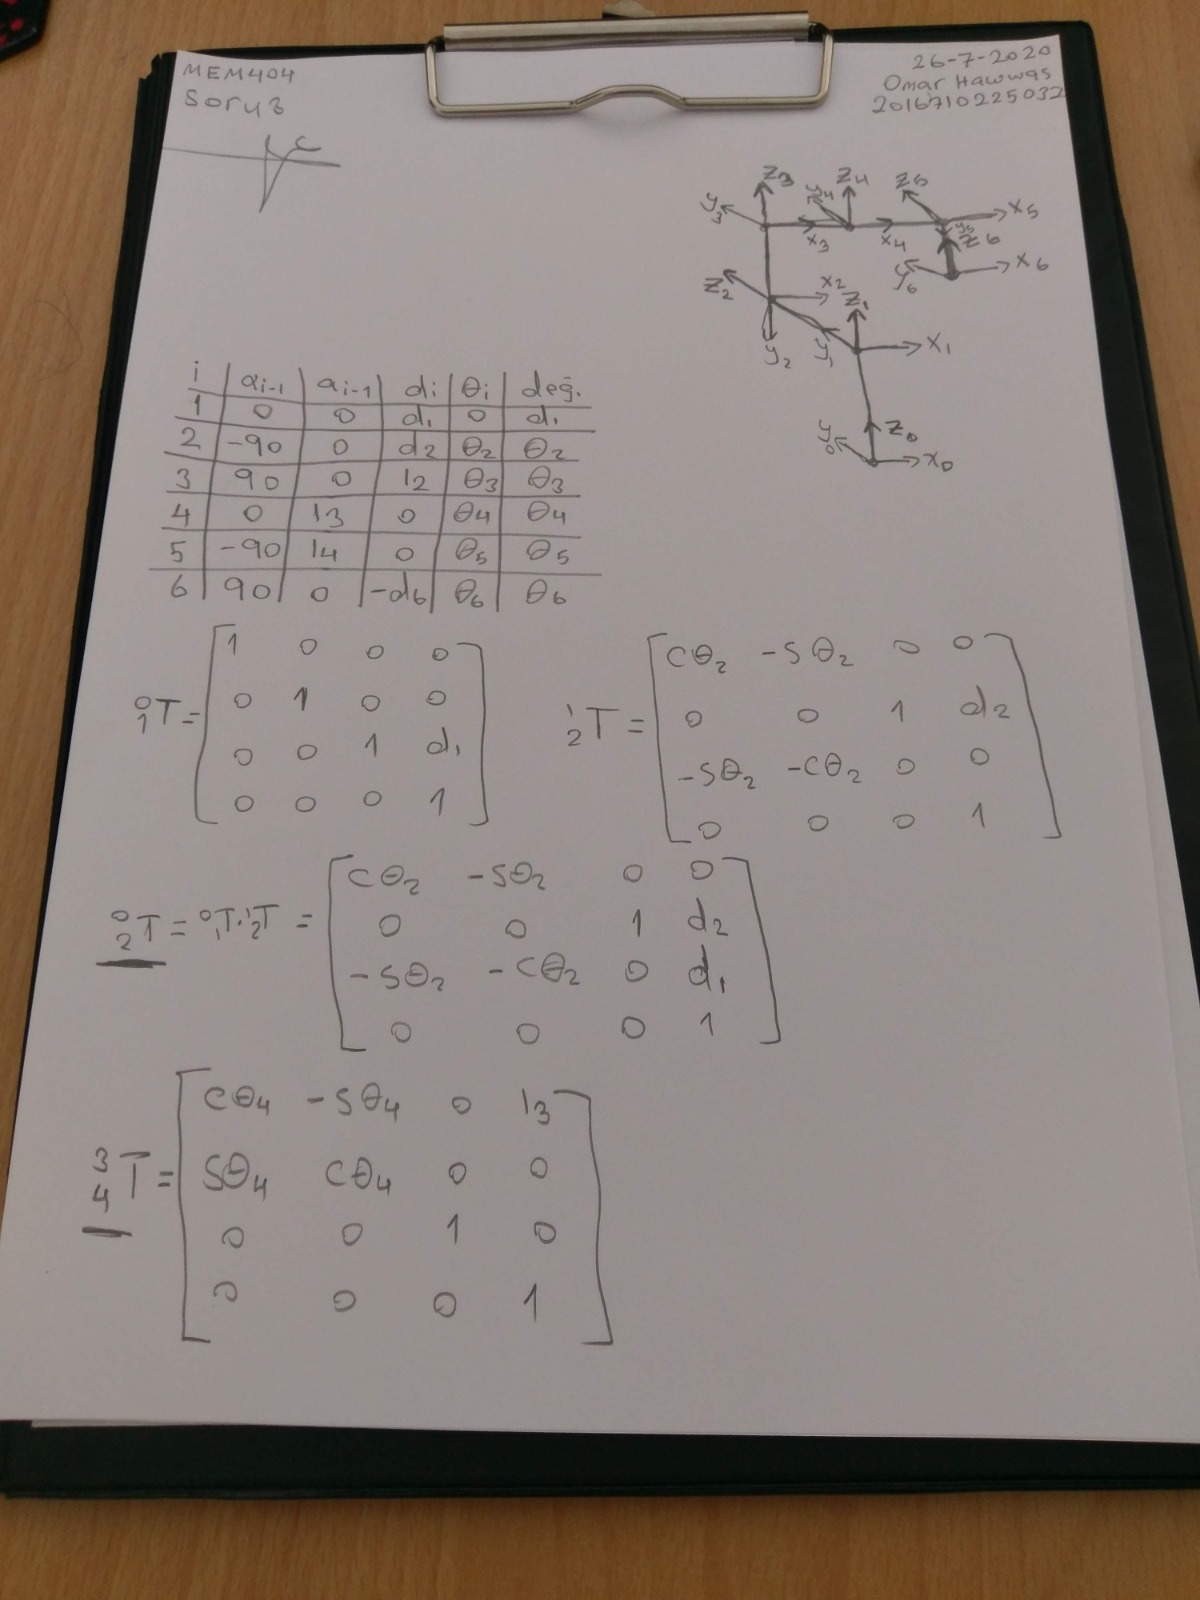 MEM404
Soru3
26-7-2020
Omar Hawwas
2016710225032
Z3 Z4 Z5
y3 y4 x3 x4 y5 x5
Z6 y6 x6
Z2 x2 Z1
y2 y1 x1
y0 Z0 x0
i αi-1 ai-1 di θi değ.
1 0 0 d1 0 d1
2 -90 0 d2 θ2 θ2
3 90 0 l2 θ3 θ3
4 0 l3 0 θ4 θ4
5 -90 l4 0 θ5 θ5
6 90 0 -d6 θ6 θ6
0 1 T =
1 0 0 0
0 1 0 0
0 0 1 d1
0 0 0 1
1 2 T =
cθ2 -sθ2 0 0
0 0 1 d2
-sθ2 -cθ2 0 0
0 0 0 1
0 2 T = 0 1 T · 1 2 T =
cθ2 -sθ2 0 0
0 0 1 d2
-sθ2 -cθ2 0 d1
0 0 0 1
3 4 T =
cθ4 -sθ4 0 l3
sθ4 cθ4 0 0
0 0 1 0
0 0 0 1